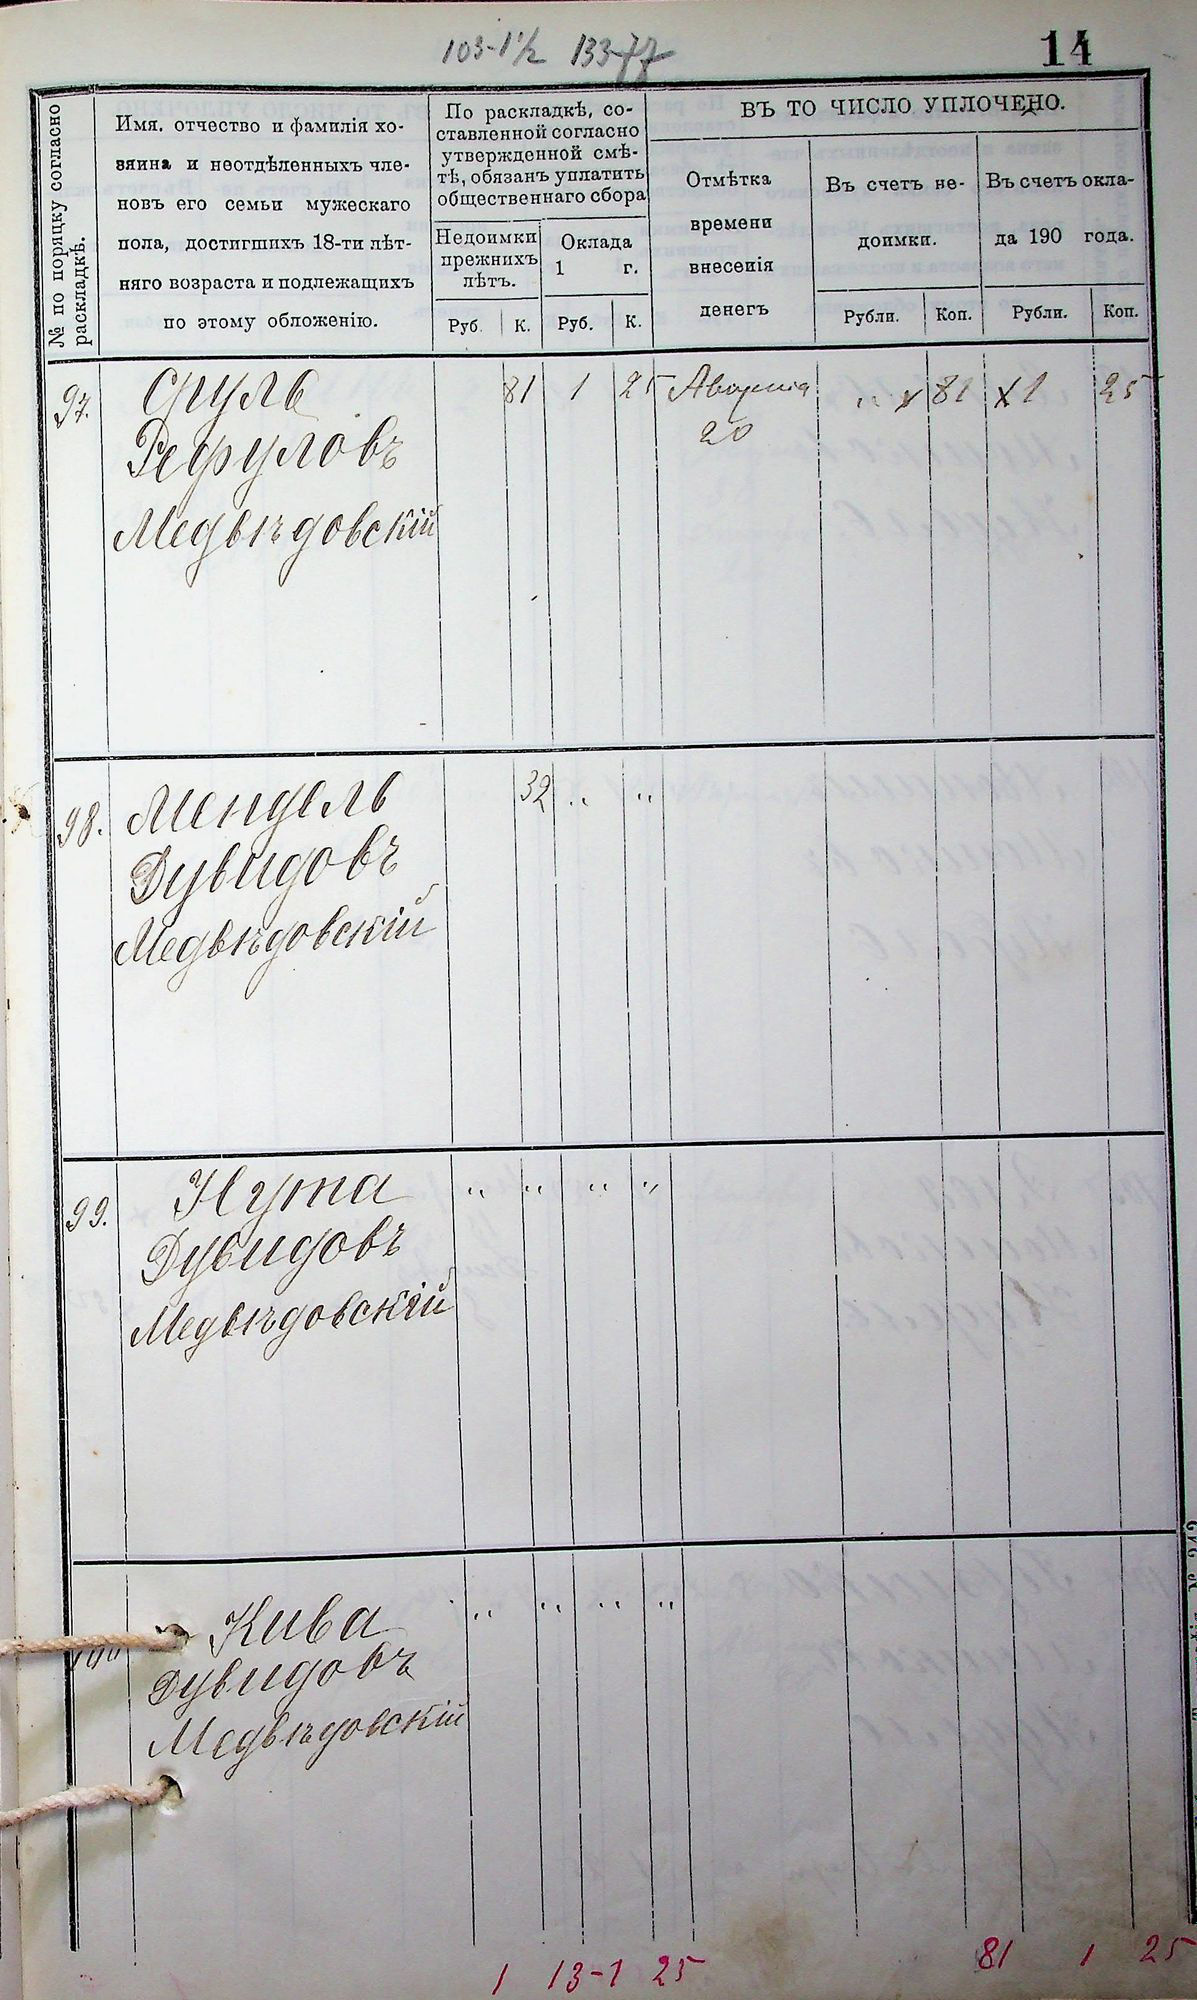 103-1½ 133-77
14
№ по поряцку согласно раскладкѣ.
Имя. отчество и фамилія хо-
зяина и неотдѣленныхъ чле-
новъ его семьи мужескаго
пола, достигшихъ 18-ти лѣт-
няго возраста и подлежащихъ
по этому обложенію.
По раскладкѣ, со-
ставленной согласно
утвержденной смѣ-
тѣ, обязанъ уплатить
общественнаго сбора
Недоимки
прежнихъ
лѣтъ.
Оклада
1 г.
Руб. К. Руб. К.
ВЪ ТО ЧИСЛО УПЛОЧЕНО.
Отмѣтка
времени
внесенія
денегъ
Въ счетъ не-
доимки.
Въ счетъ окла-
да 190 года.
Рубли. Коп. Рубли. Коп.
97. Сруль 81 1 25 Августа " x 81 x1 25
20
Рефуловъ
Медвѣдовскій
98. Мендель 32 " "
Дувидовъ
Медвѣдовскій
99. Нута " " " "
Дувидовъ
Медвѣдовскій
100 Кива " " " "
Дувидовъ
Медвѣдовскій
1 13-1 25 81 1 25